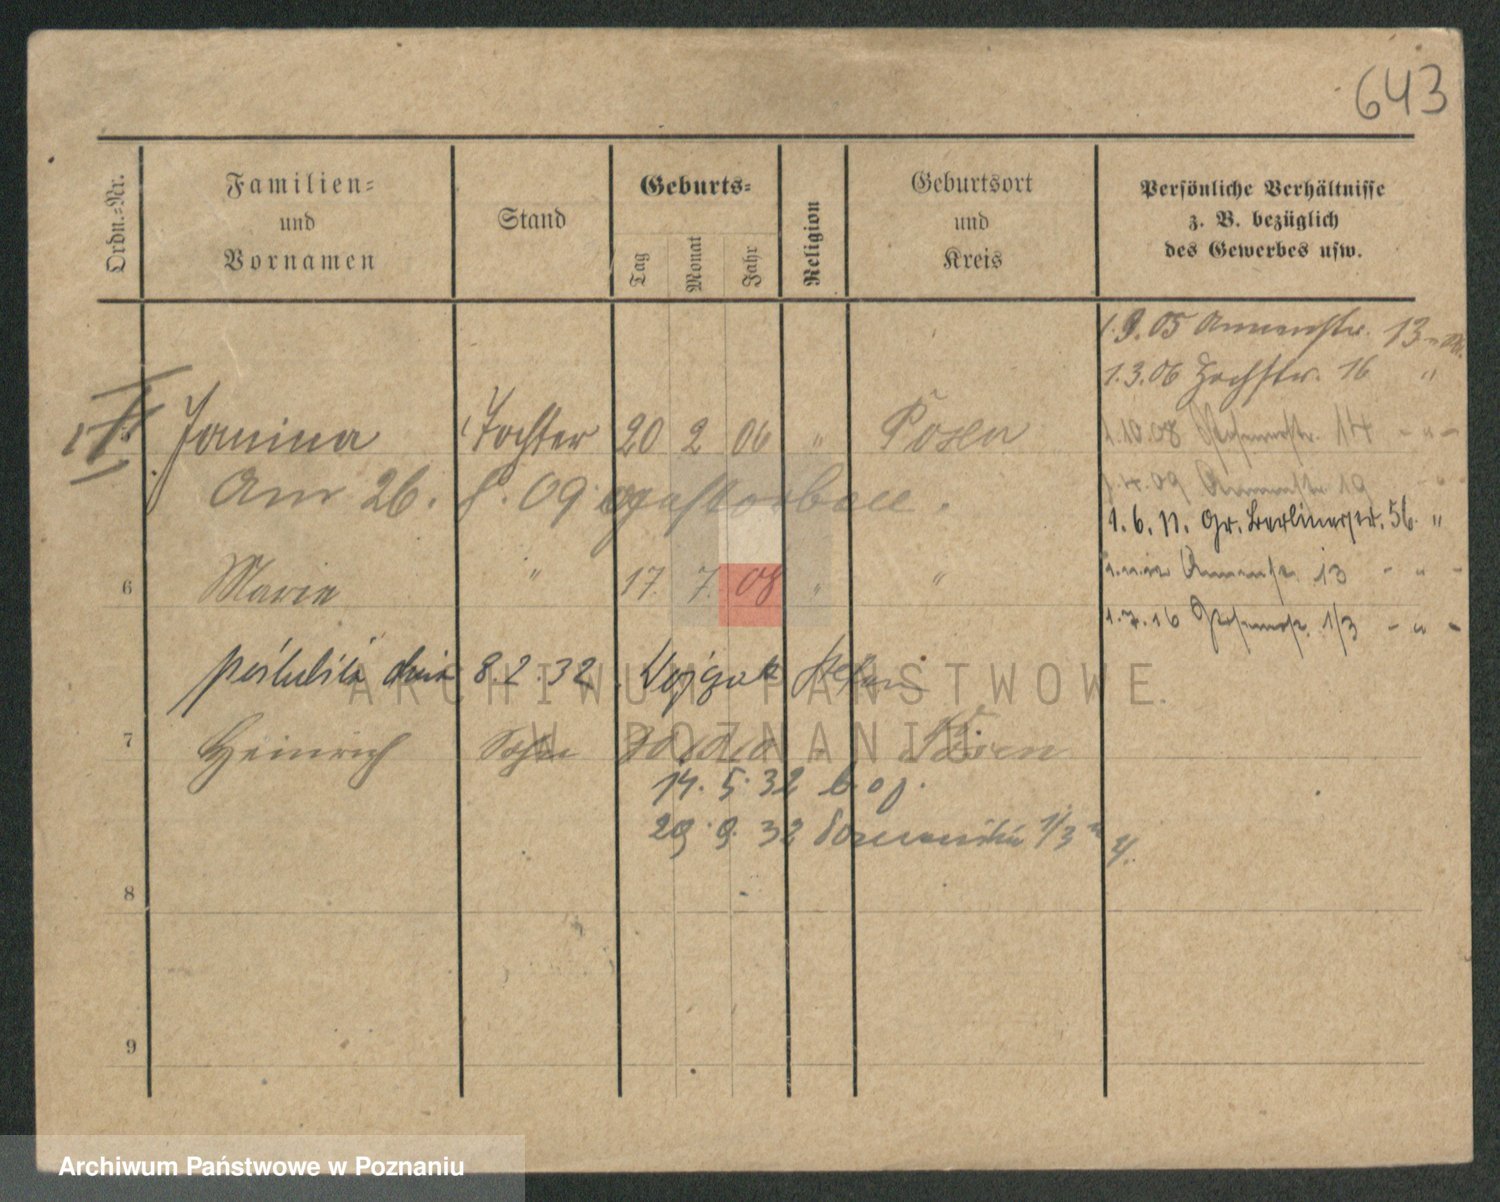 643
Ordn.=Nr.
Familien=
und
Vornamen
Stand
Geburts=
Tag
Monat
Jahr
Religion
Geburtsort
und
Kreis
Persönliche Verhältnisse
z. B. bezüglich
des Gewerbes usw.
1.9.05 Annenstr. 13
1.3.06 Hochstr. 16 "
Janina Tochter 20 2 06 " Posen
1.10.08 14 - " -
Am 26. 8. 09 gestorben.
1.4.09 Annenstr. 19
1. 6. 11. Gr. Berlinerstr. 56. "
6 Marie " 17. 7. 08 " "
Annenstr. 13 - " -
1.7.16 1/3 - " -
poślubiła dnia 8. 2. 32 Wojciak Stefan
7 Heinrich Sohn Posen
14. 5. 32
29 9. 32 1/3
8
9
ARCHIWUM PAŃSTWOWE
W POZNANIU
Archiwum Państwowe w Poznaniu